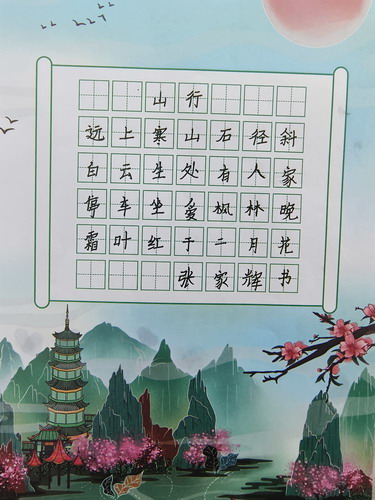 山行
远上寒山石径斜
白云生处有人家
停车坐爱枫林晚
霜叶红于二月花
张家辉书